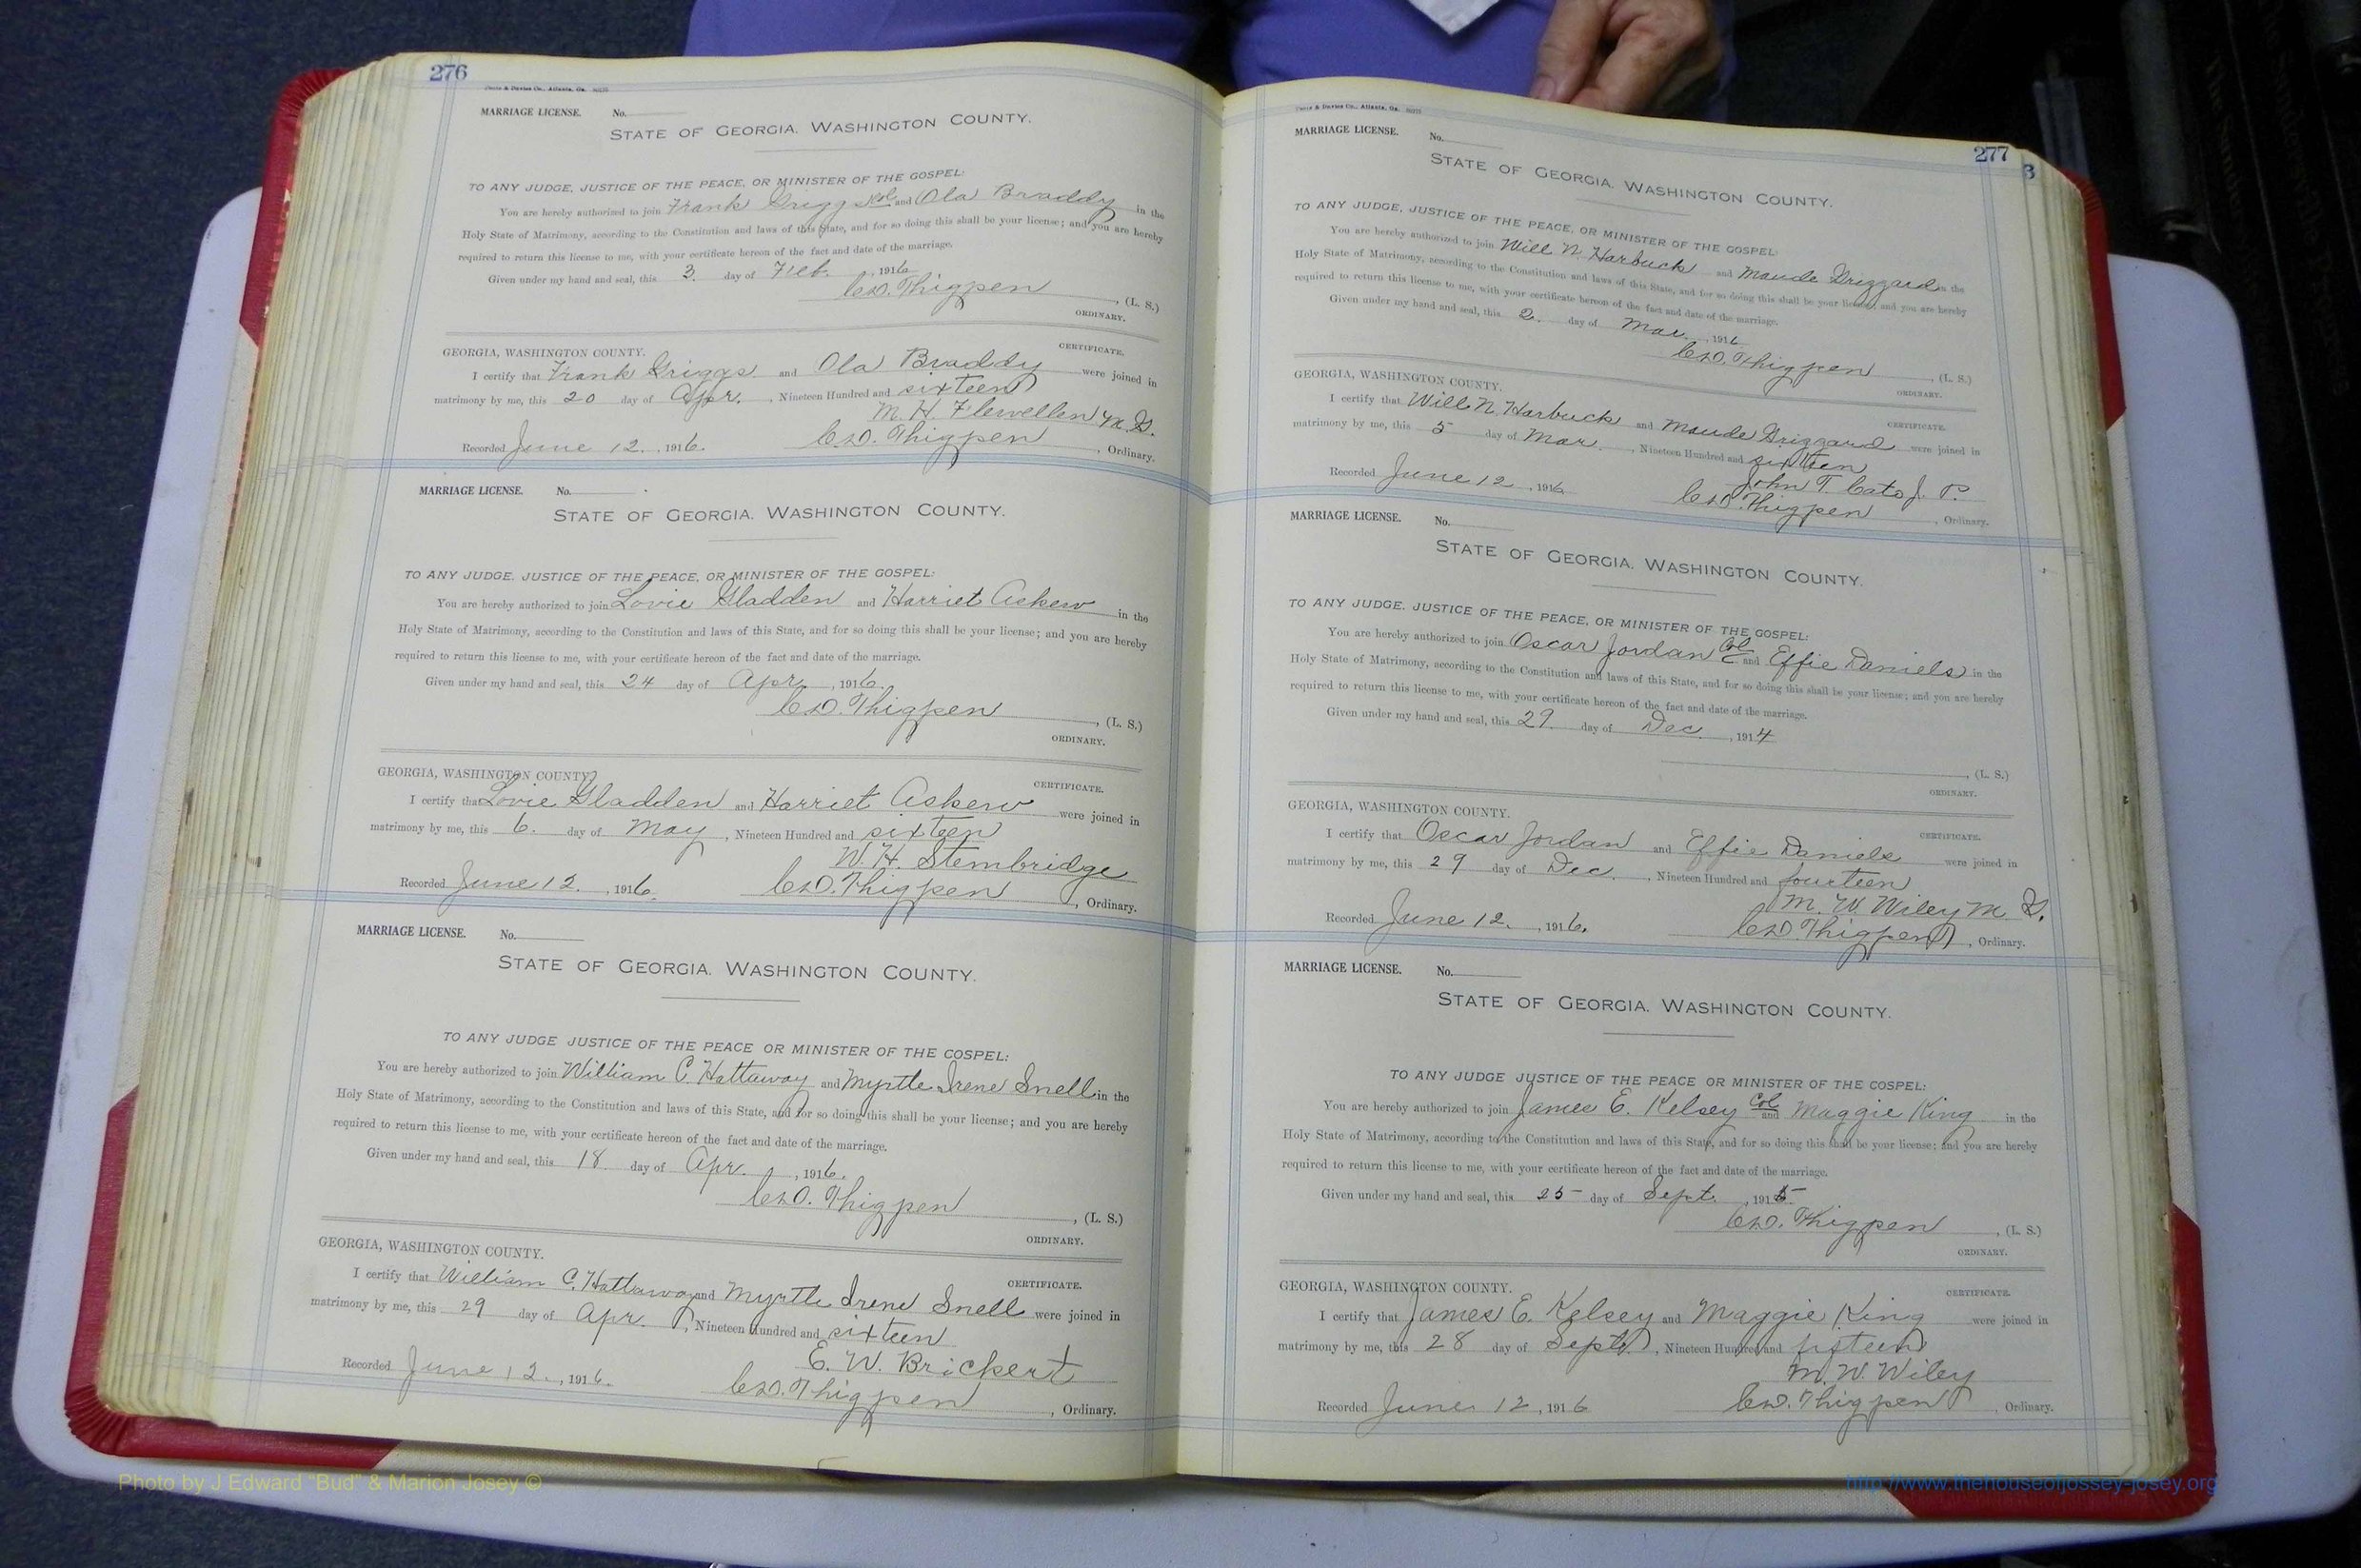 276
MARRIAGE LICENSE. No.
STATE OF GEORGIA. WASHINGTON COUNTY.
TO ANY JUDGE, JUSTICE OF THE PEACE, OR MINISTER OF THE GOSPEL:
You are hereby authorized to join Frank Griggs Col and Ola Braddy in the
Holy State of Matrimony, according to the Constitution and laws of this State, and for so doing this shall be your license; and you are hereby
required to return this license to me, with your certificate hereon of the fact and date of the marriage.
Given under my hand and seal, this 3. day of Feb. , 1916
C.D. Thigpen , (L. S.)
ORDINARY.
GEORGIA, WASHINGTON COUNTY. CERTIFICATE.
I certify that Frank Griggs and Ola Braddy were joined in
matrimony by me, this 20 day of Apr. , Nineteen Hundred and sixteen
M. H. Flewellen M. G.
Recorded June 12. , 1916. C.D. Thigpen , Ordinary.
MARRIAGE LICENSE. No.
STATE OF GEORGIA. WASHINGTON COUNTY.
TO ANY JUDGE. JUSTICE OF THE PEACE, OR MINISTER OF THE GOSPEL:
You are hereby authorized to join Lovie Gladden and Harriet Askew in the
Holy State of Matrimony, according to the Constitution and laws of this State, and for so doing this shall be your license; and you are hereby
required to return this license to me, with your certificate hereon of the fact and date of the marriage.
Given under my hand and seal, this 24 day of Apr , 1916.
C.D. Thigpen , (L. S.)
ORDINARY.
GEORGIA, WASHINGTON COUNTY. CERTIFICATE.
I certify that Lovie Gladden and Harriet Askew were joined in
matrimony by me, this 6. day of May , Nineteen Hundred and sixteen
W. H. Stembridge
Recorded June 12. , 1916. C.D. Thigpen , Ordinary.
MARRIAGE LICENSE. No.
STATE OF GEORGIA. WASHINGTON COUNTY.
TO ANY JUDGE JUSTICE OF THE PEACE OR MINISTER OF THE GOSPEL:
You are hereby authorized to join William C. Hattaway and Myrtle Irene Snell in the
Holy State of Matrimony, according to the Constitution and laws of this State, and for so doing this shall be your license; and you are hereby
required to return this license to me, with your certificate hereon of the fact and date of the marriage.
Given under my hand and seal, this 18 day of Apr. , 1916.
C.D. Thigpen , (L. S.)
ORDINARY.
GEORGIA, WASHINGTON COUNTY. CERTIFICATE.
I certify that William C. Hattaway and Myrtle Irene Snell were joined in
matrimony by me, this 29 day of Apr. , Nineteen Hundred and sixteen
E. W. Brickert
Recorded June 12. , 1916. C.D. Thigpen , Ordinary.
277
3
MARRIAGE LICENSE. No.
STATE OF GEORGIA. WASHINGTON COUNTY.
TO ANY JUDGE, JUSTICE OF THE PEACE, OR MINISTER OF THE GOSPEL:
You are hereby authorized to join Will N. Harbuck and Maude Grizzard in the
Holy State of Matrimony, according to the Constitution and laws of this State, and for so doing this shall be your license; and you are hereby
required to return this license to me, with your certificate hereon of the fact and date of the marriage.
Given under my hand and seal, this 2. day of Mar. , 1916
C.D. Thigpen , (L. S.)
ORDINARY.
GEORGIA, WASHINGTON COUNTY. CERTIFICATE.
I certify that Will N. Harbuck and Maude Grizzard were joined in
matrimony by me, this 5 day of Mar. , Nineteen Hundred and sixteen
John T. Cato J. P.
Recorded June 12 , 1916 C.D. Thigpen , Ordinary.
MARRIAGE LICENSE. No.
STATE OF GEORGIA. WASHINGTON COUNTY.
TO ANY JUDGE. JUSTICE OF THE PEACE, OR MINISTER OF THE GOSPEL:
You are hereby authorized to join Oscar Jordan Col and Effie Daniels in the
Holy State of Matrimony, according to the Constitution and laws of this State, and for so doing this shall be your license; and you are hereby
required to return this license to me, with your certificate hereon of the fact and date of the marriage.
Given under my hand and seal, this 29. day of Dec. , 1914
, (L. S.)
ORDINARY.
GEORGIA, WASHINGTON COUNTY. CERTIFICATE.
I certify that Oscar Jordan and Effie Daniels were joined in
matrimony by me, this 29 day of Dec. , Nineteen Hundred and fourteen
M. W. Wiley M. G.
Recorded June 12. , 1916. C.D. Thigpen , Ordinary.
MARRIAGE LICENSE. No.
STATE OF GEORGIA. WASHINGTON COUNTY.
TO ANY JUDGE JUSTICE OF THE PEACE OR MINISTER OF THE GOSPEL:
You are hereby authorized to join James E. Kelsey Col and Maggie King in the
Holy State of Matrimony, according to the Constitution and laws of this State, and for so doing this shall be your license; and you are hereby
required to return this license to me, with your certificate hereon of the fact and date of the marriage.
Given under my hand and seal, this 25 day of Sept. , 1915
C.D. Thigpen , (L. S.)
ORDINARY.
GEORGIA, WASHINGTON COUNTY. CERTIFICATE.
I certify that James E. Kelsey and Maggie King were joined in
matrimony by me, this 28 day of Sept. , Nineteen Hundred and fifteen
M. W. Wiley
Recorded June 12 , 1916 C.D. Thigpen , Ordinary.
Photo by J Edward "Bud" & Marion Josey ©
http://www.thehouseofjossey-josey.org